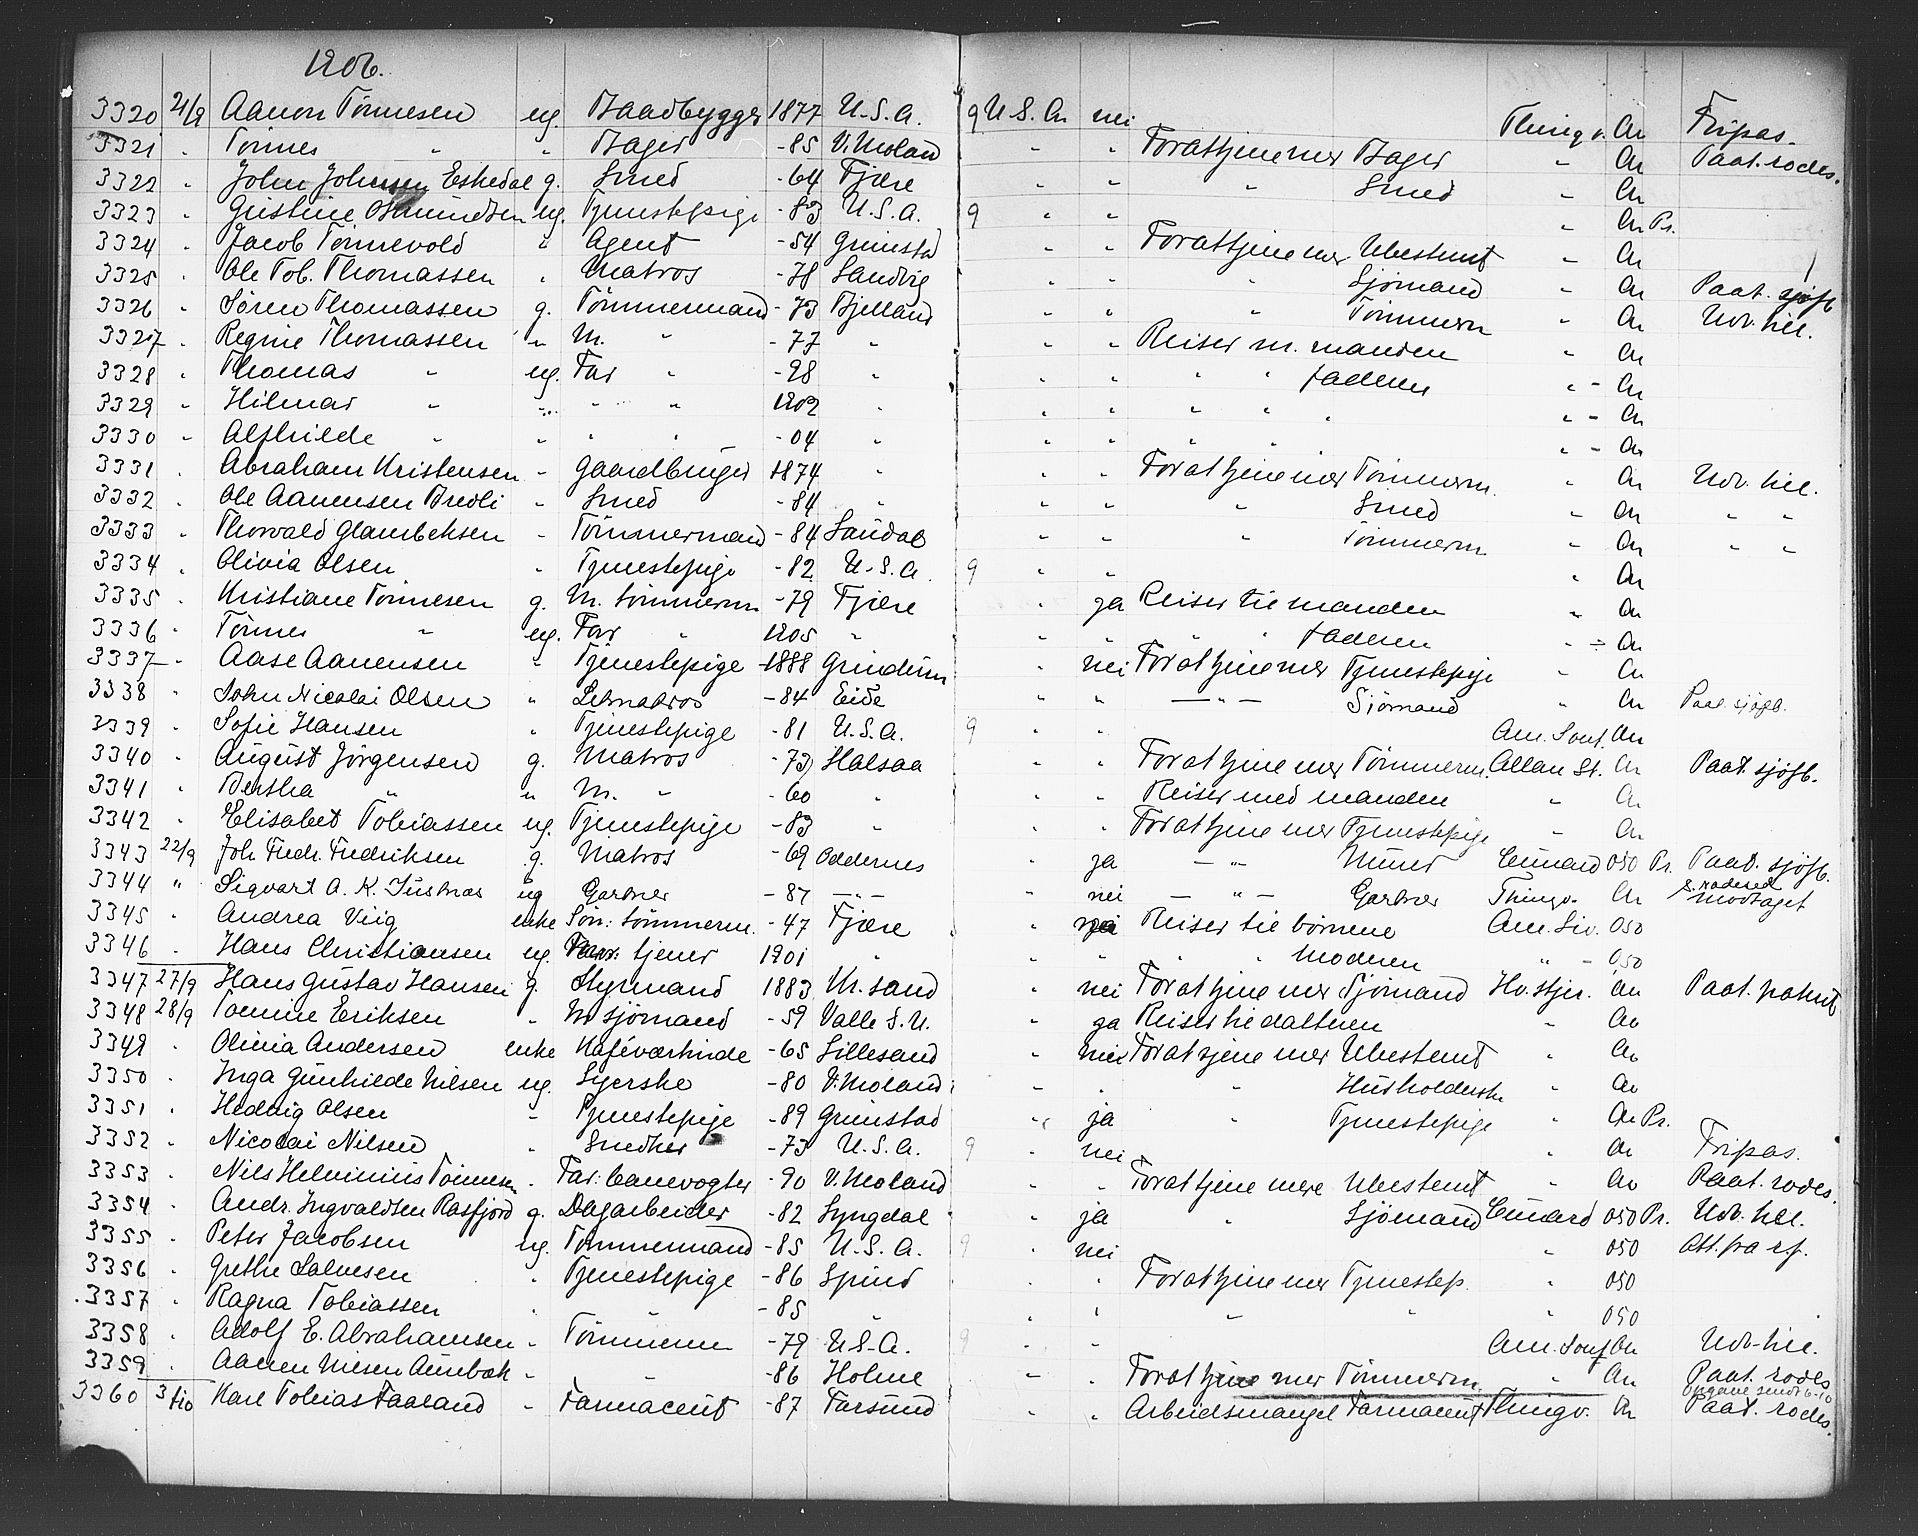 1906.
3320 21/9 Aanon Tönnesen ug. Baadbygger 1877 U.S.A. 9 U.S.An nei Thingv. An Fripas.
3321 " Tönnes " " Bager -85 V.Moland " " Forattjene mer Bager " An Paat. rodes.
3322 " John Johnsen Eskedal g. Smed -64 Fjære " " " Smed " An
3323 " Gustine Osmundsen ug. Tjenestepige -83 U.S.A. 9 " " " An Pr.
3324 " Jacob Tönnevold " Agent -54 Grimstad " " Forattjene mer Ubestemt " An
3325 " Ole Tob. Thomassen " Matros -78 Landvig " " " Sjömand " An Paat. sjöfb
3326 " Sören Thomassen g. Tömmermand -73 Bjelland " " " Tömmerm " An Udv. till.
3327 " Regine Thomassen " M. " -77 " " " Reiser m. manden " An
3328 " Thomas " ug. Far " -98 " " " " " faderen " - An
3329 " Hilmar " " " " 1902 " " " " " " " - An
3330 " Alfhilde " " " " -04 " " " " " " - An
3331 " Abraham Kristensen " Gaardbruger 1874 " " " Forattjene mer Tömmerm. " An Udv. till.
3332 " Ole Aanensen Bredli " Smed -84 " " " " Smed " An " "
3333 " Thorvald Glambeksen " Tömmermand -84 Laudal " " " Tömmerm " An " "
3334 " Olivia Olsen " Tjenestepige -82 U.S.A. 9 " " " An
3335 " Kristiane Tönnesen g. M. tömmerm -79 Fjære " ja Reiser til manden " An
3336 " Tönnes " ug. Far " 1905 " " " " " faderen " An
3337 " Aase Aanensen " Tjenestepige -1888 Grindum " nei Forattjene mer Tjenestepige " An
3338 " John Nicolai Olsen " Letmatros -84 Eide " " — " — Sjömand " An Paat. sjöfb.
3339 " Sofie Hansen " Tjenestepige -81 U.S.A. 9 " " Am. Sout. An
3340 " August Jörgensen g. Matros -73 Halsaa " " Forattjene mer Tömmerm. Allan St. An Paat. sjöfb.
3341 " Bertha " " M. " -60 " " " Reiser med manden " An
3342 " Elisabet Tobiassen ug. Tjenestepige -83 " " " Forattjene mer Tjenestepige " An
3343 22/9 Joh. Fredr. Fredriksen g. Matros -69 Oddernes " ja — " — Murer Cunard 050 Pr. Paat. sjöfb.
3344 " Sigvart A. K. Justnæs ug Gartner -87 —"— nei — " — Gartner Thingv. An rodesed modtaget
3345 " Andrea Virig enke Søn: tömmerm. -47 Fjære " nei Reiser til börnene Am. Liv. 050
3346 " Hans Christiansen ug. tjener 1901 " " " " " moderen " - 050
3347 27/9 Hans Gustav Hansen g. Styrmand 1883 Kr.sand " nei Forattjene mer Sjömand Hv.stjer. An Paat. patent
3348 28/9 Tomine Eriksen " M sjömand -59 Valle S.U. " ja Reiser til datteren " An
3349 " Olivia Andersen enke Kaféværtinde -65 Lillesand " nei Forattjene mer Ubestemt " An
3350 " Inga Gunhilde Nilsen ug. Syerske -80 V.Moland " " " Husholderske " An
3351 " Hedvig Olsen " Tjenestepige -89 Grimstad " ja " Tjenestepige " An Pr.
3352 " Nicolai Nilsen " Snedker -73 U.S.A. 9 " nei " An Fripas.
3353 " Nils Helminius Tönnesen " Far: banevogter -90 V.Moland " " Forattjene mere Ubestemt " An Paat. rodes.
3354 " Andr. Ingvaldsen Rasfjord g. Dagarbeider -82 Lyngdal " ja " Sjömand Cunard 050 Pr. Udv. till.
3355 " Peter Jacobsen ug. Tömmermand -85 U.S.A. 9 " nei " 050 Att. fra rf.
3356 " Grethe Salvesen " Tjenestepige -86 Spind " " Forattjene mer Tjenestep. " 050
3357 " Ragna Tobiassen " " -85 " " " " " " 050
3358 " Adolf E. Abrahamsen " Tömmerm -79 U.S.A. 9 " " Am. Sout An Udv. till.
3359 " Aanen Nilsen Aunbak " " -86 Holme " " Forattjene mer Tömmerm. " An Paat. rodes
3360 3/10 Karl Tobias Faaland " Farmaceut -87 Farsund " " Arbeidsmangel Farmaceut Thingv. An opgave sendt 6-10 Paat. rodes.